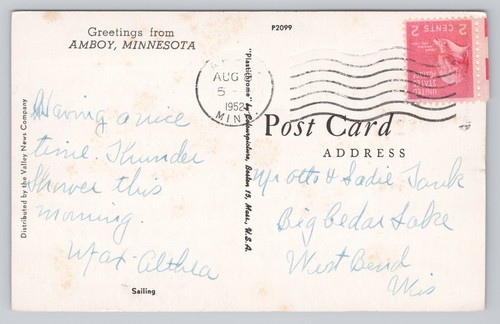 Greetings from
AMBOY, MINNESOTA
P2099
AUG
5
1952
MINN.
2 CENTS 2
UNITED
STATES
Post Card
ADDRESS
Having a nice
time. Thunder
Shower this
morning.
Max - Althea
Mr Otto & Sadie Tank
Big Cedar Lake
West Bend
Wis
Sailing
Distributed by the Valley News Company
"Plastichrome" by Colourpicture, Boston 15, Mass., U.S.A.